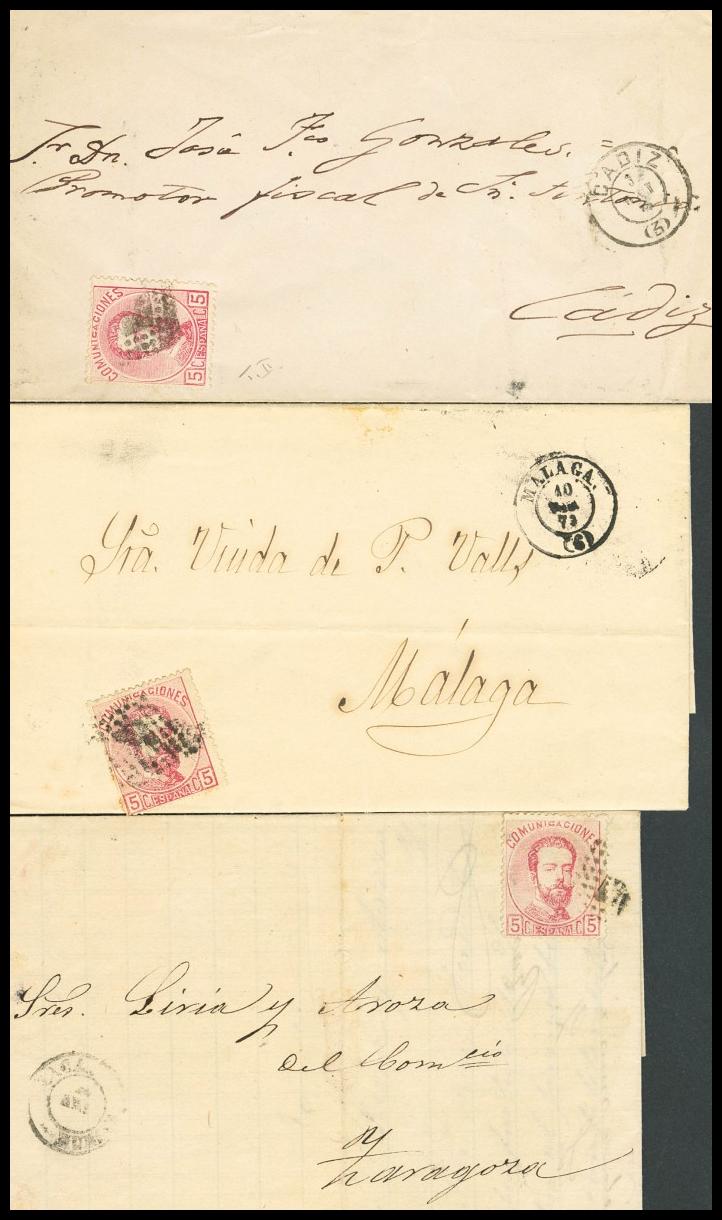 Sr. Dn. José Fco Gonzales. =
Promotor fiscal de Sn.
CADIZ
(3)
Cádiz
COMUNICACIONES
5 C. ESPAÑA. C 5
MALAGA.
10
73
(6)
Sra. Viuda de P. Valls
Málaga
COMUNICACIONES
5 C. ESPAÑA. C 5
COMUNICACIONES
5 C. ESPAÑA. C 5
Sres. Liria y Aroza
del Comcio
Zaragoza